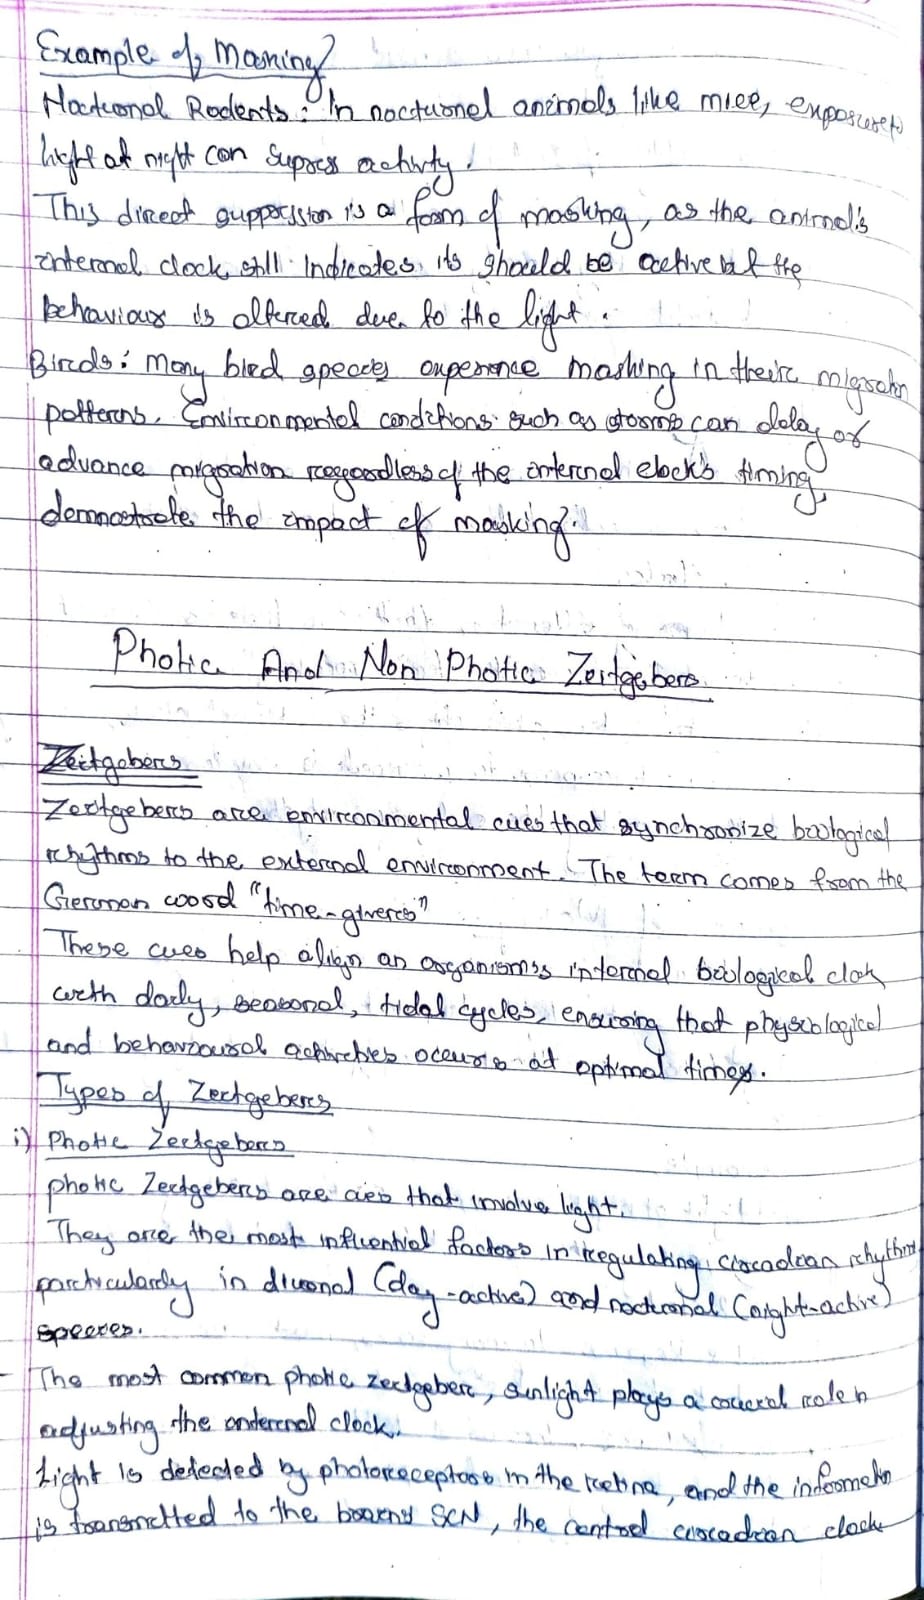 Example of Masking
Nocturnal Rodents: In nocturnal animals like mice, exposure to
light at night can supress activity.
This direct suppression is a form of masking, as the animal's
internal clock still indicates its should be active but the
behaviour is altered due to the light.
Birds: Many bird species experience masking in their migration
patterns. Environmental conditions such as storms can delay or
advance migration regardless of the internal clock's timing,
demonstrate the impact of masking.
Photic And Non Photic Zeitgebers
Zeitgebers
Zeitgebers are environmental cues that synchronize biological
rhythms to the external environment. The term comes from the
German word "time-givers"
These cues help align an organism's internal biological clok
with daily, seasonal, tidal cycles, ensuring that physiological
and behavioural activities occurs at optimal times.
Types of Zeitgebers
i) Photic Zeitgebers
photic Zeitgebers are cues that involve light.
They are the most influential factors in regulating circadian rhythm
particularly in diurnal (day-active) and nocturnal (night-active)
species.
- The most common photic zeitgeber, sunlight plays a crucial role in
adjusting the internal clock.
Light is detected by photoreceptors in the retina, and the information
is transmitted to the brain's SCN, the central circadian clock